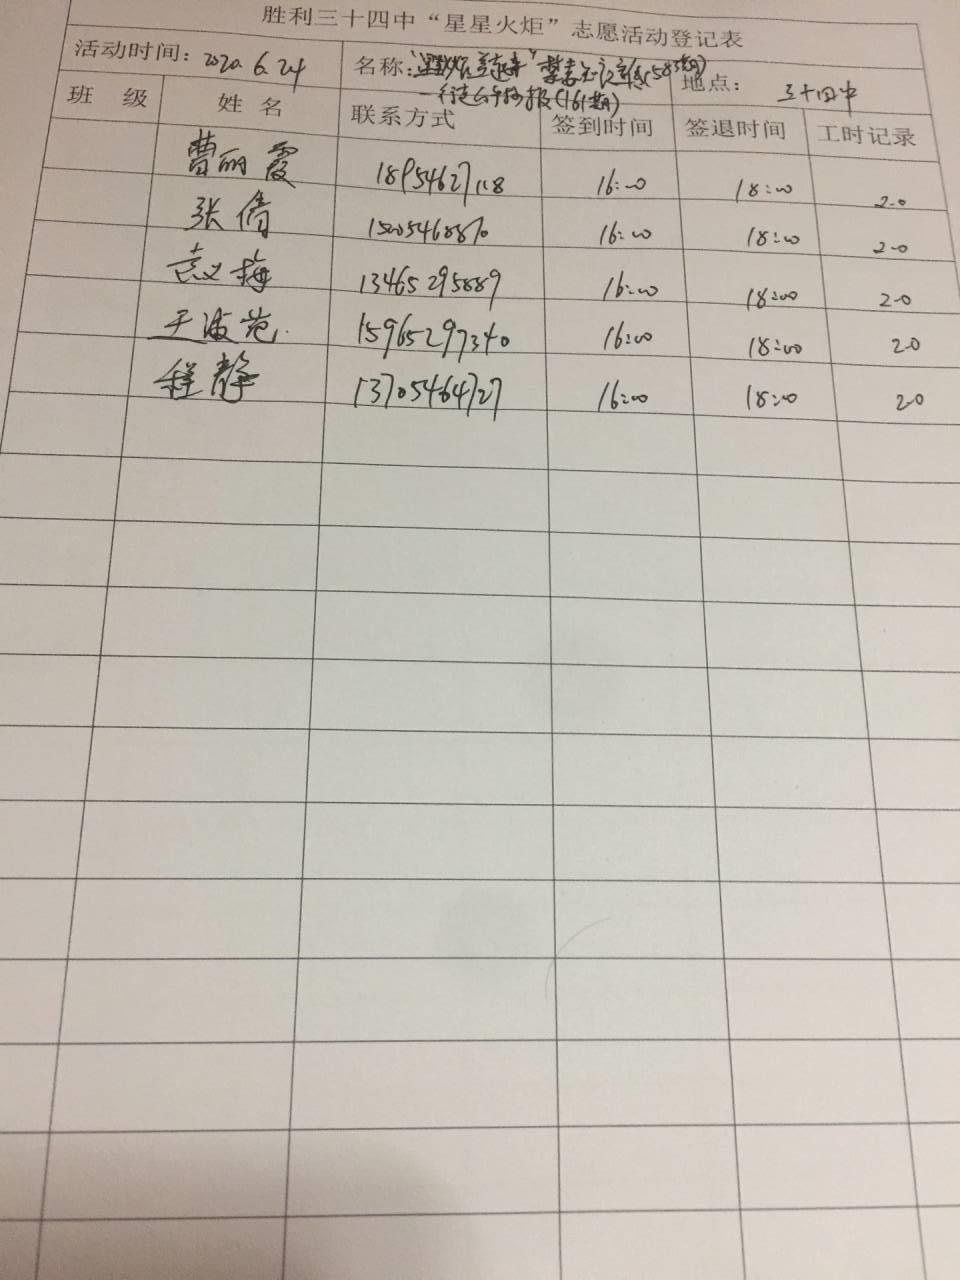 胜利三十四中“星星火炬”志愿活动登记表
活动时间：2020.6.24 名称： (583期) 地点：三十四中
手抄报(161期)
班 级 姓 名 联系方式 签到时间 签退时间 工时记录
曹丽霞 18954627118 16:00 18:00 2.0
张倩 15205468870 16:00 18:00 2.0
袁义梅 13465295889 16:00 18:00 2.0
王波 15965297340 16:00 18:00 2.0
程静 13705464727 16:00 18:00 2.0